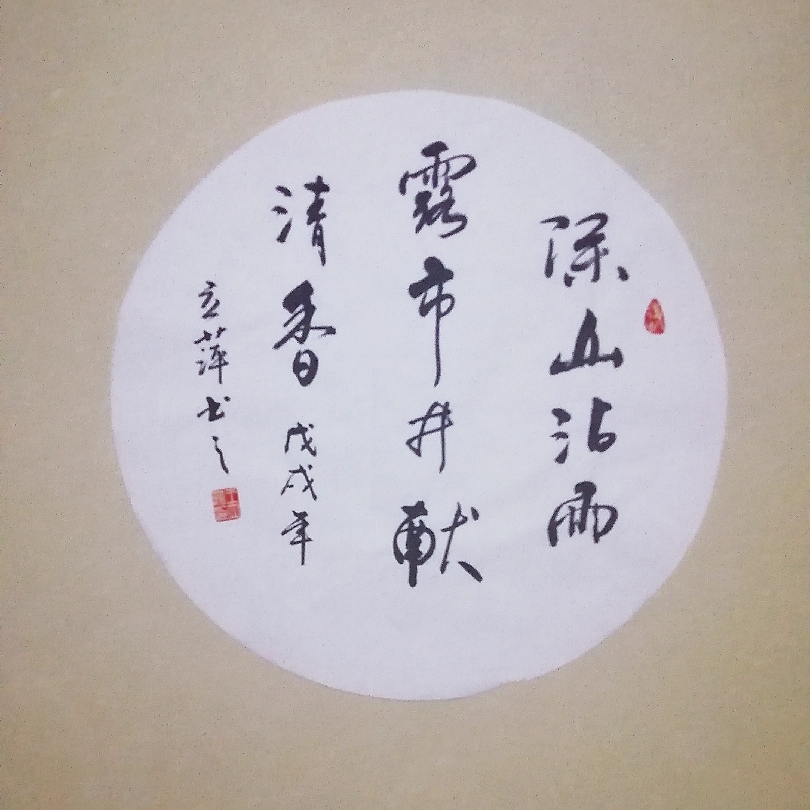 深山沾雨
露市井献
清香戊戌年
立萍书之